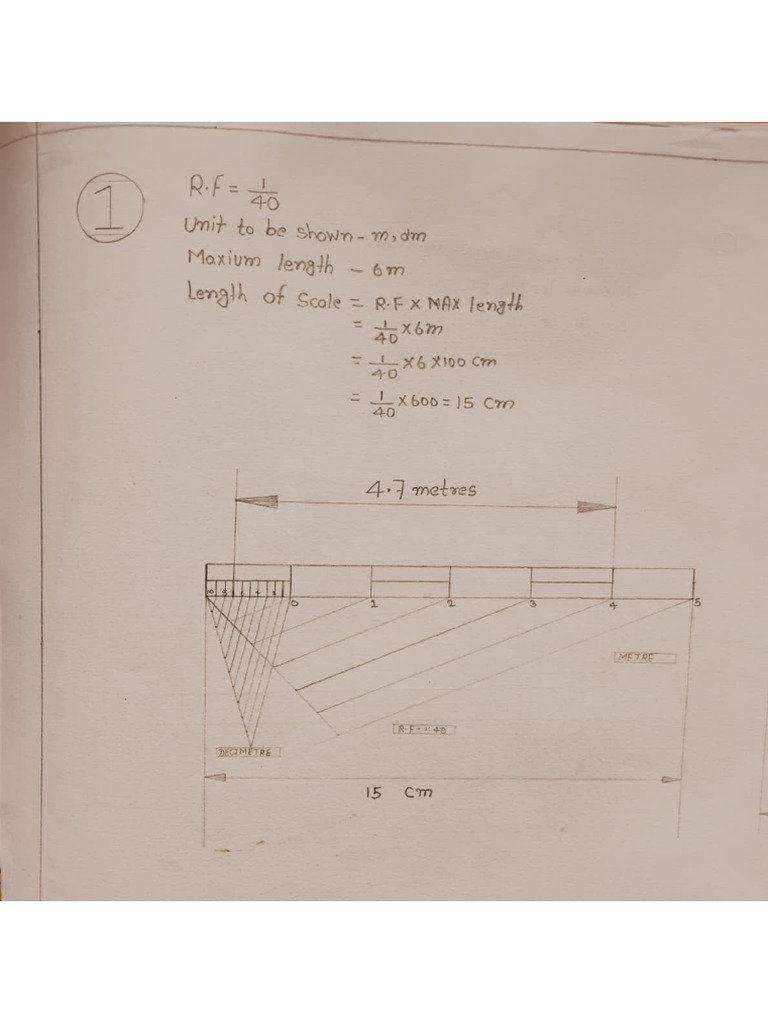 1
R.F = 1/40
Unit to be shown - m, dm
Maxium length - 6m
Length of Scale = R.F × MAX length
= 1/40 × 6m
= 1/40 × 6 × 100 cm
= 1/40 × 600 = 15 cm
4.7 metres
10 8 6 4 2 0 1 2 3 4 5
METRE
R.F = 1:40
DECIMETRE
15 cm